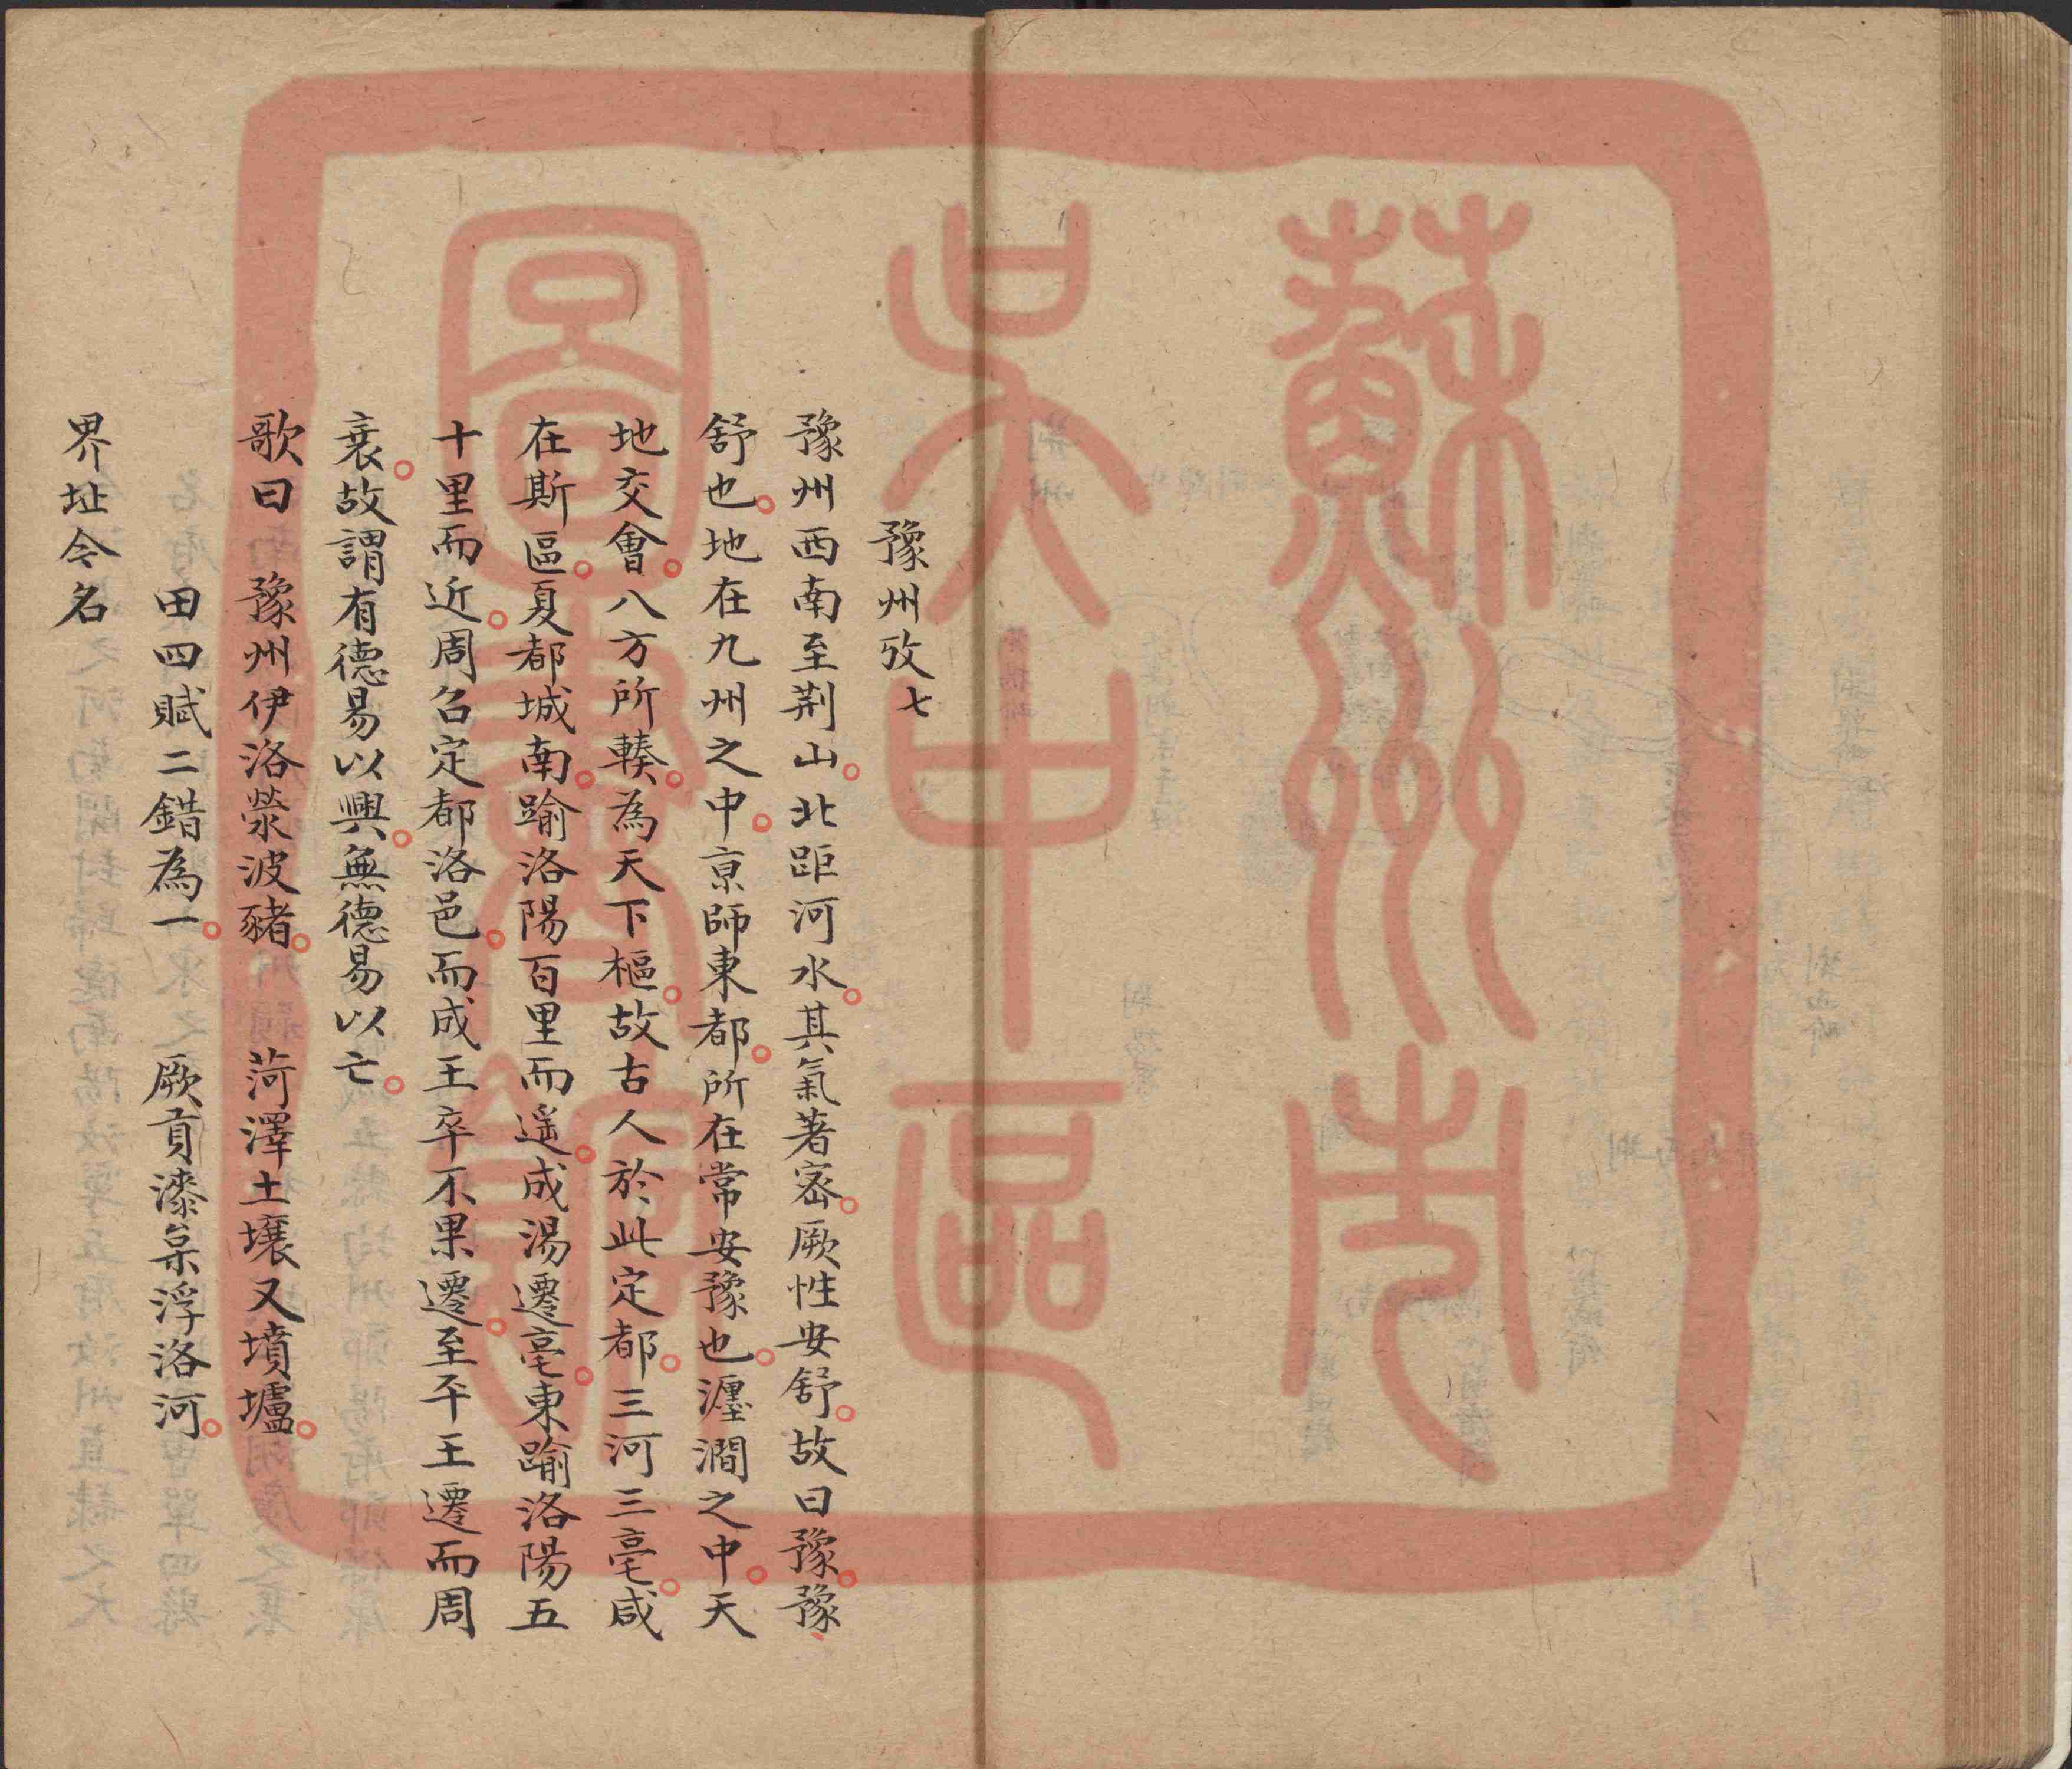 豫州攷七
豫州西南至荆山北距河水其氣著宻厥性安舒故曰豫豫
舒也地在九州之中京師東都所在常安豫也瀍澗之中天
地交會八方所輳為天下樞故古人於此定都三河三亳咸
在斯區夏都城南踰洛陽百里而遥成湯遷亳東踰洛陽五
十里而近周召定都洛邑而成王卒不果遷至平王遷而周
衰故謂有德易以興無德易以亡
歌曰　豫州伊洛滎波豬　菏澤土壤又墳壚
田四賦二錯為一　厥貢漆枲浮洛河
界址今名
蘇州市
文中區
圖書館